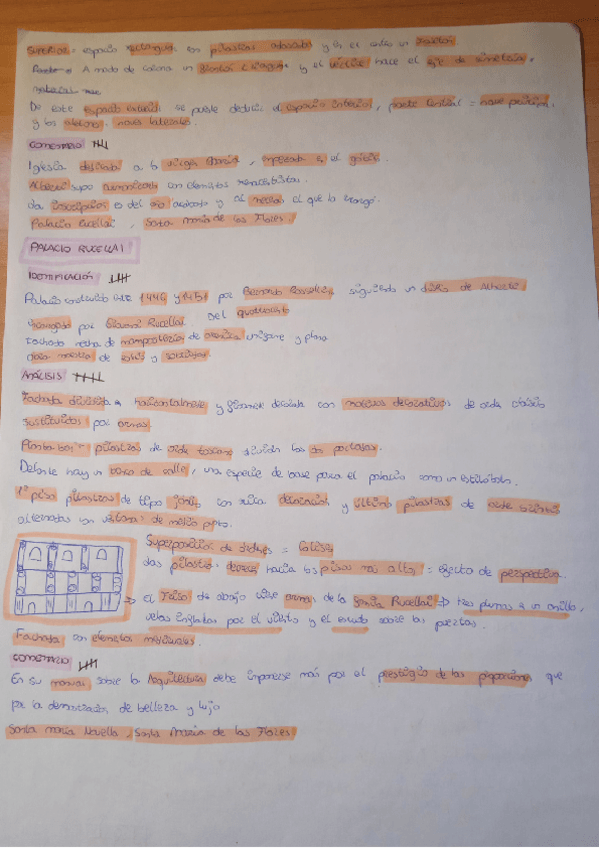 SUPERIOR = espacio rectangular con pilastras adosadas y en el centro un frontón.
A modo de corona un frontón triangular y el vértice hace el eje de simetría.
De este espacio exterior se puede deducir el espacio interior, parte central = nave principal
y los naves laterales.
COMENTARIO
Iglesia dedicada a la virgen María, empezada en el gótico.
Alberti supo con elementos renacentistas.
La inscripción es del año acabado y al mecenas el que la encargó.
Palacio Rucellai, Santa María de las Flores.
PALACIO RUCELLAI
IDENTIFICACIÓN
Palacio construido entre 1446 y 1451 por Bernardo Rossellino siguiendo un diseño de Alberti.
Encargado por Giovanni Rucellai. Del quattrocento
Fachada hecha de mampostería de uniforme y plana
ANÁLISIS
Fachada dividida horizontalmente y decorada con motivos decorativos de orden clásico
sustituidos por arcos.
Planta baja = pilastras de orden toscano dividen las portadas.
Delante hay un banco de calle, una especie de base para el palacio como un estilóbato.
1º piso pilastras de tipo jónico con rica decoración y último pilastras de orden corintio
alternadas con ventanas de medio punto.
Superposición de órdenes = Coliseo
Las pilastras decrecen hacia los pisos más altos = efecto de perspectiva.
→ El friso de abajo tiene armas de la familia Rucellai → tres plumas a un anillo,
velas infladas por el viento y el escudo sobre las puertas.
Fachada con elementos medievales.
COMENTARIO
En su manual sobre la Arquitectura debe imponerse más por el prestigio de las proporciones que
por la demostración de belleza y lujo.
Santa María Novella, Santa María de las Flores